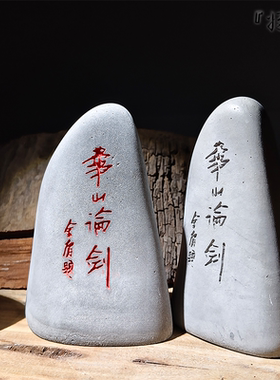 華山論剑
金庸題
華山論剑
金庸題